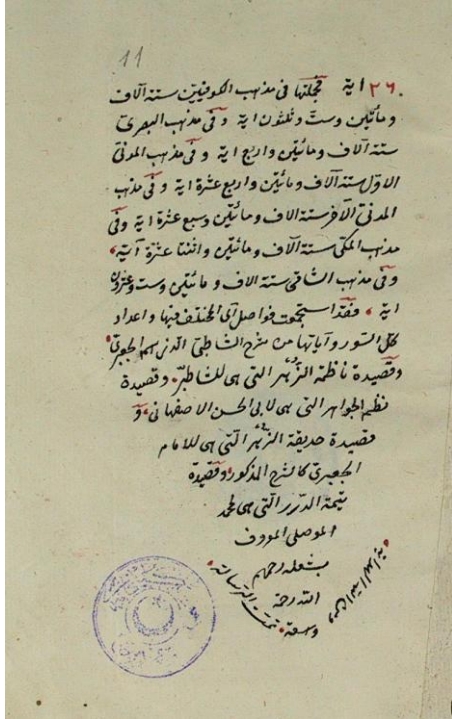 11
٢٦ اية فجملتها فى مذهب الكوفيين ستة آلاف
ومأتين وست وثلثون اية وفى مذهب البصرى
ستة آلاف ومأتين واربع اية وفى مذهب المدنى
الاول ستة آلاف ومأتين واربع عشرة اية وفى مذهب
المدنى الآخر ستة الاف ومأتين وسبع عشرة اية وفى
مذهب المكى ستة آلاف ومأتين واثنتا عشرة آية
وفى مذهب الشامى ستة الاف ومأتين وست وعشرون
اية فقد استجمعت فواصل الآى المختلف فيها واعداد
كل السور وآياتها من شرح الشاطبى الذى سم الجعبرى
وقصيدة ناظمة الزهر التى هى للشاطبى وقصيدة
نظم الجواهر التى هى لابى الحسن الاصفهانى و
قصيدة حديقة الزهر التى هى للامام
الجعبرى كالشرح المذكور وقصيدة
يتيمة الدرر التى هى لمحمد
الموصلى المعروف
بشعله رحمهم
الله رحمة
واسعة تمت الرسالة